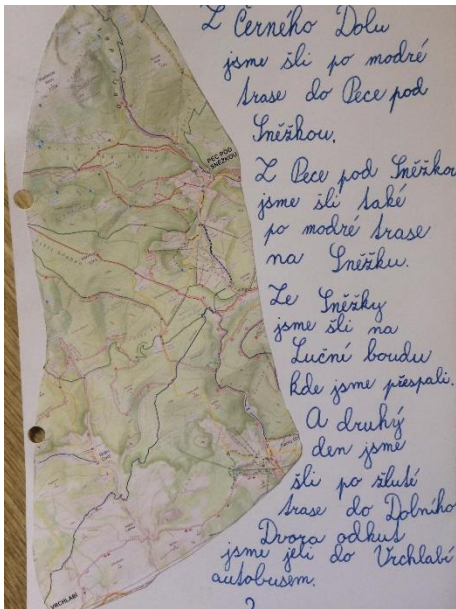 Z Černého Dolu
jsme šli po modré
trase do Pece pod
Sněžkou.
Z Pece pod Sněžkou
jsme šli také
po modré trase
na Sněžku.
Ze Sněžky
jsme šli na
Luční boudu
kde jsme přespali.
A druhý
den jsme
šli po žluté
trase do Dolního
Dvora odkut
jsme jeli do Vrchlabí
autobusem.
PEC POD
SNĚŽKOU
VRCHLABÍ